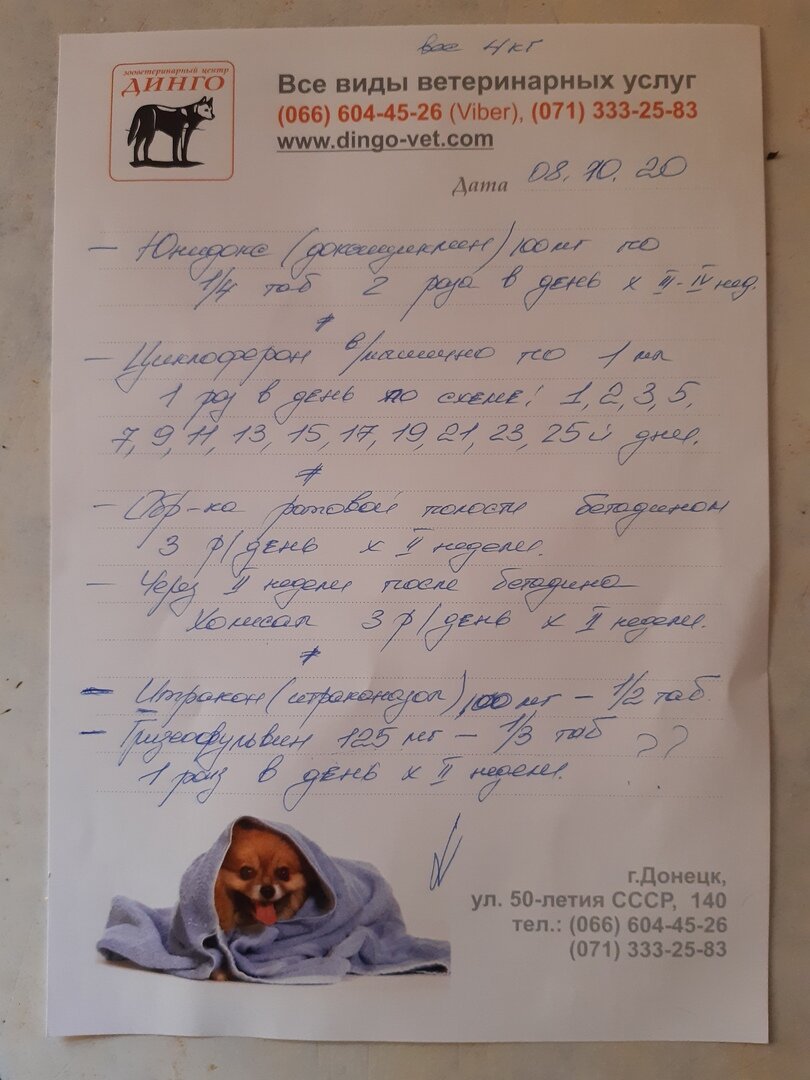 вес 4 кг
зооветеринарный центр
ДИНГО
Все виды ветеринарных услуг
(066) 604-45-26 (Viber), (071) 333-25-83
www.dingo-vet.com
Дата 08.10.20
– Юнидокс (доксициклин) 100 мг по
1/4 таб 2 раза в день x III-IV нед.
#
– Циклоферон в/мышечно по 1 мл
1 раз в день по схеме: 1, 2, 3, 5,
7, 9, 11, 13, 15, 17, 19, 21, 23, 25й дни.
#
– Обр-ка ротовой полости бетадином
3 р/день x II недели.
– Через II недели после бетадина
Холисал 3 р/день x II недели.
#
– Итракон (итраконазол) 100 мг – 1/2 таб.
– Гризеофульвин 125 мг – 1/3 таб ??
1 раз в день x II недели.
г.Донецк,
ул. 50-летия СССР, 140
тел.: (066) 604-45-26
(071) 333-25-83